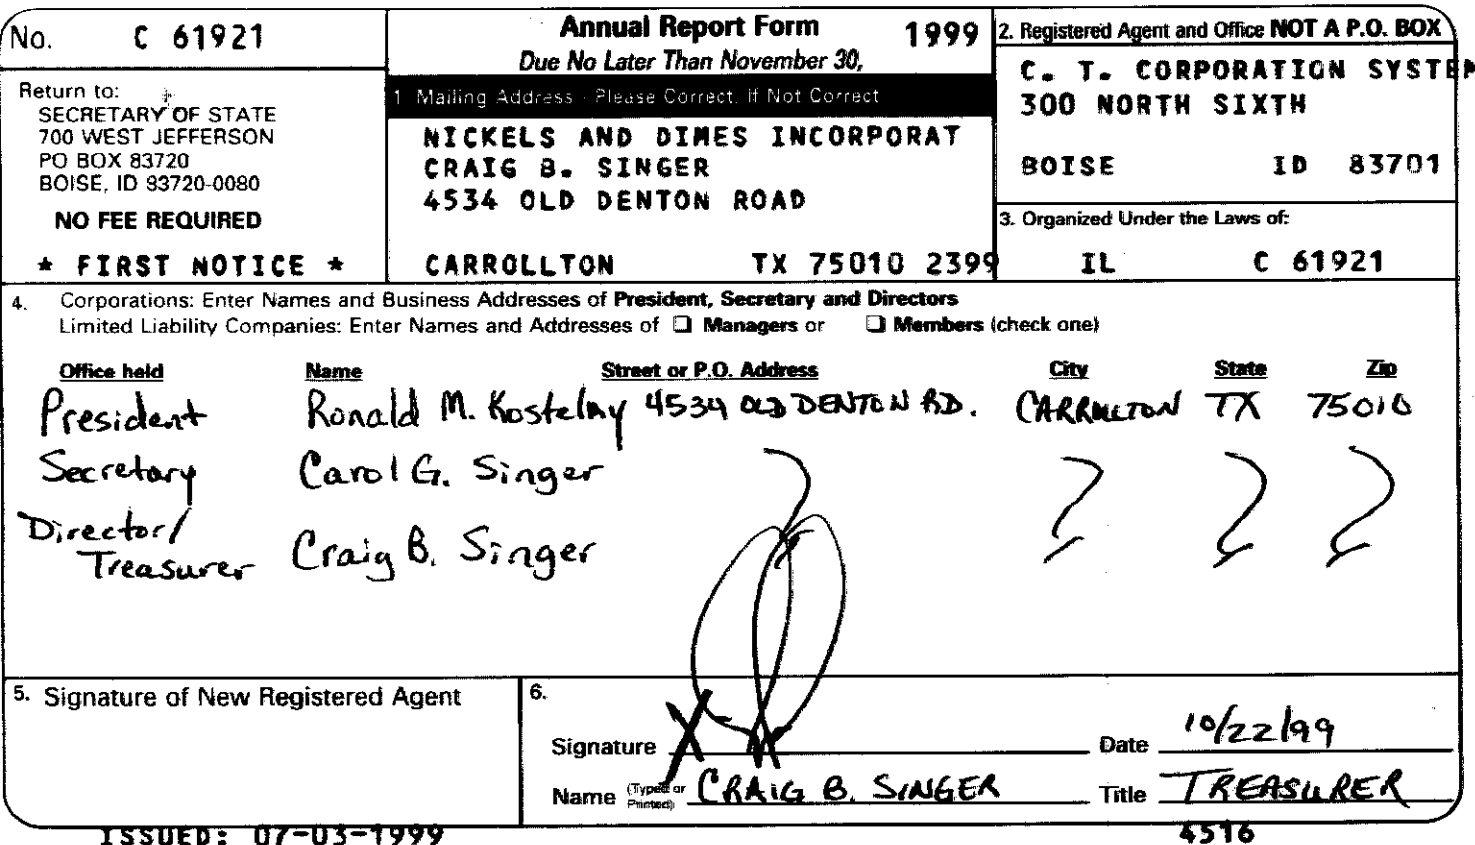 No. C 61921
Annual Report Form 1999
Due No Later Than November 30,
Return to:
SECRETARY OF STATE
700 WEST JEFFERSON
PO BOX 83720
BOISE, ID 83720-0080
NO FEE REQUIRED
* FIRST NOTICE *
1 Mailing Address - Please Correct, If Not Correct
NICKELS AND DIMES INCORPORAT
CRAIG B. SINGER
4534 OLD DENTON ROAD
CARROLLTON TX 75010 2399
2. Registered Agent and Office NOT A P.O. BOX
C. T. CORPORATION SYSTEM
300 NORTH SIXTH
BOISE ID 83701
3. Organized Under the Laws of:
IL C 61921
4. Corporations: Enter Names and Business Addresses of President, Secretary and Directors
Limited Liability Companies: Enter Names and Addresses of ☐ Managers or ☐ Members (check one)
Office held Name Street or P.O. Address City State Zip
President Ronald M. Kostelny 4534 OLD DENTON RD. CARROLLTON TX 75010
Secretary Carol G. Singer
Director/ Treasurer Craig B. Singer
5. Signature of New Registered Agent
6.
Signature Date 10/22/99
Name (Typed or Printed) CRAIG B. SINGER Title TREASURER
ISSUED: 07-03-1999 4516